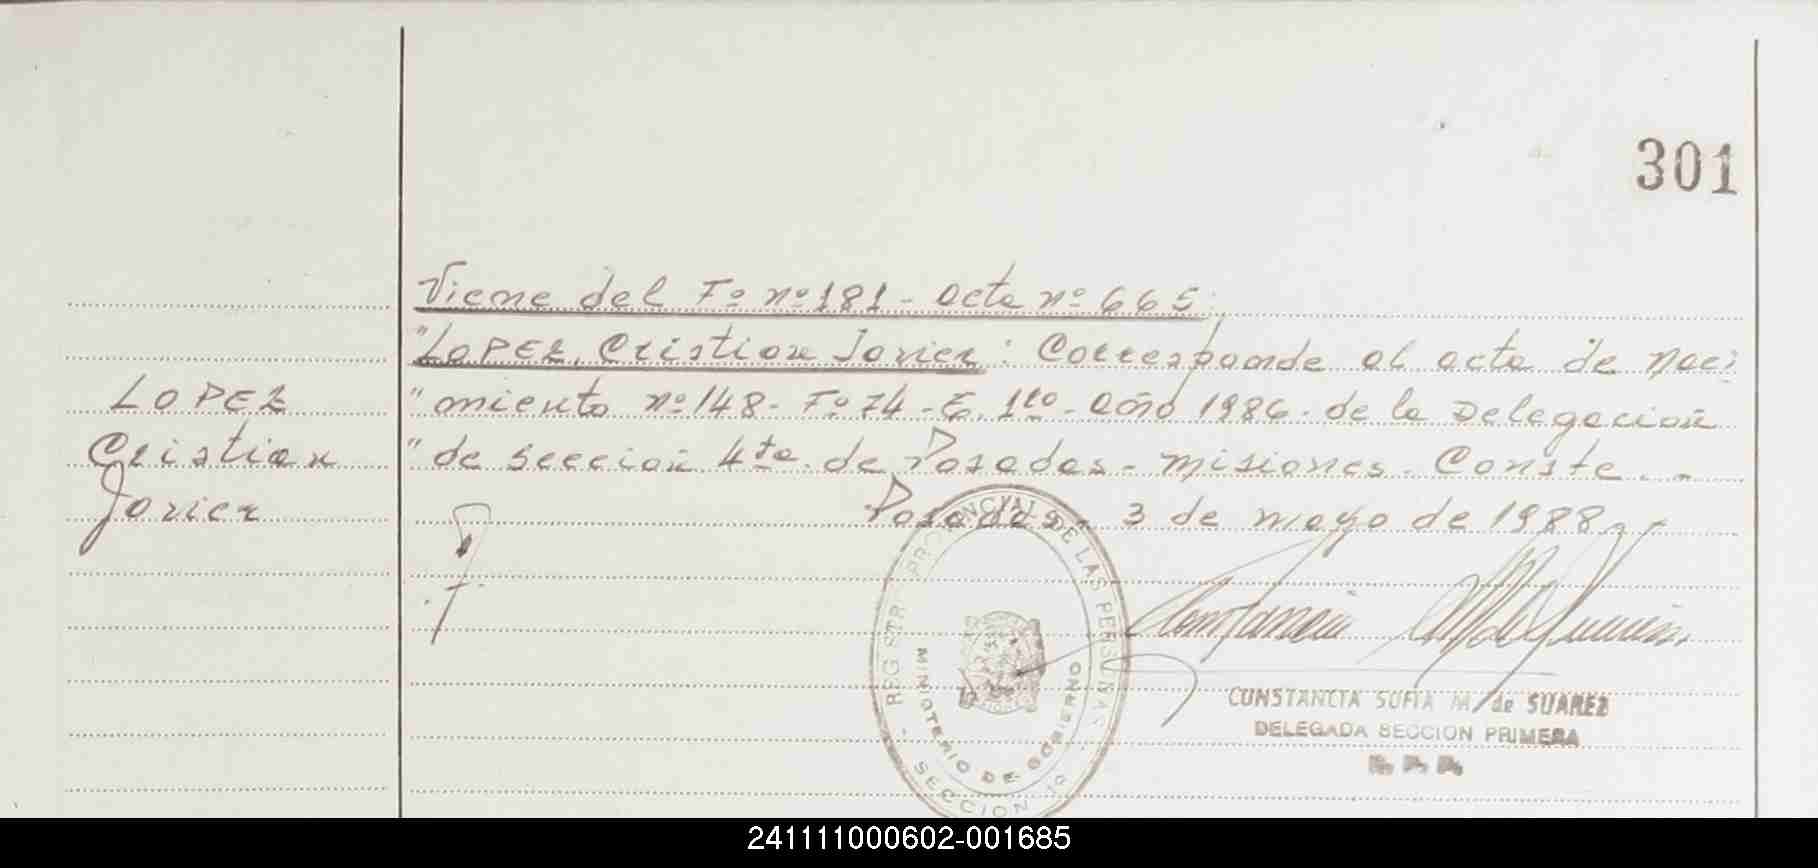 301
Viene del Fº nº 181 - acta nº 665.
"LOPEZ, Cristian Javier : Corresponde al acta de naci
LOPEZ
" miento nº 148 - Fº 74 - T. 1ro - Año 1986 - de la Delegación
Cristian
" de Sección 4ta. de Posadas - Misiones. Conste. -
Javier
Posadas, 3 de mayo de 1988
REGISTRO PROVINCIAL DE LAS PERSONAS
MINISTERIO DE GOBIERNO
SECCION 1ª
CONSTANCIA SOFIA M. de SUAREZ
DELEGADA SECCION PRIMERA
R. P. P.
241111000602-001685